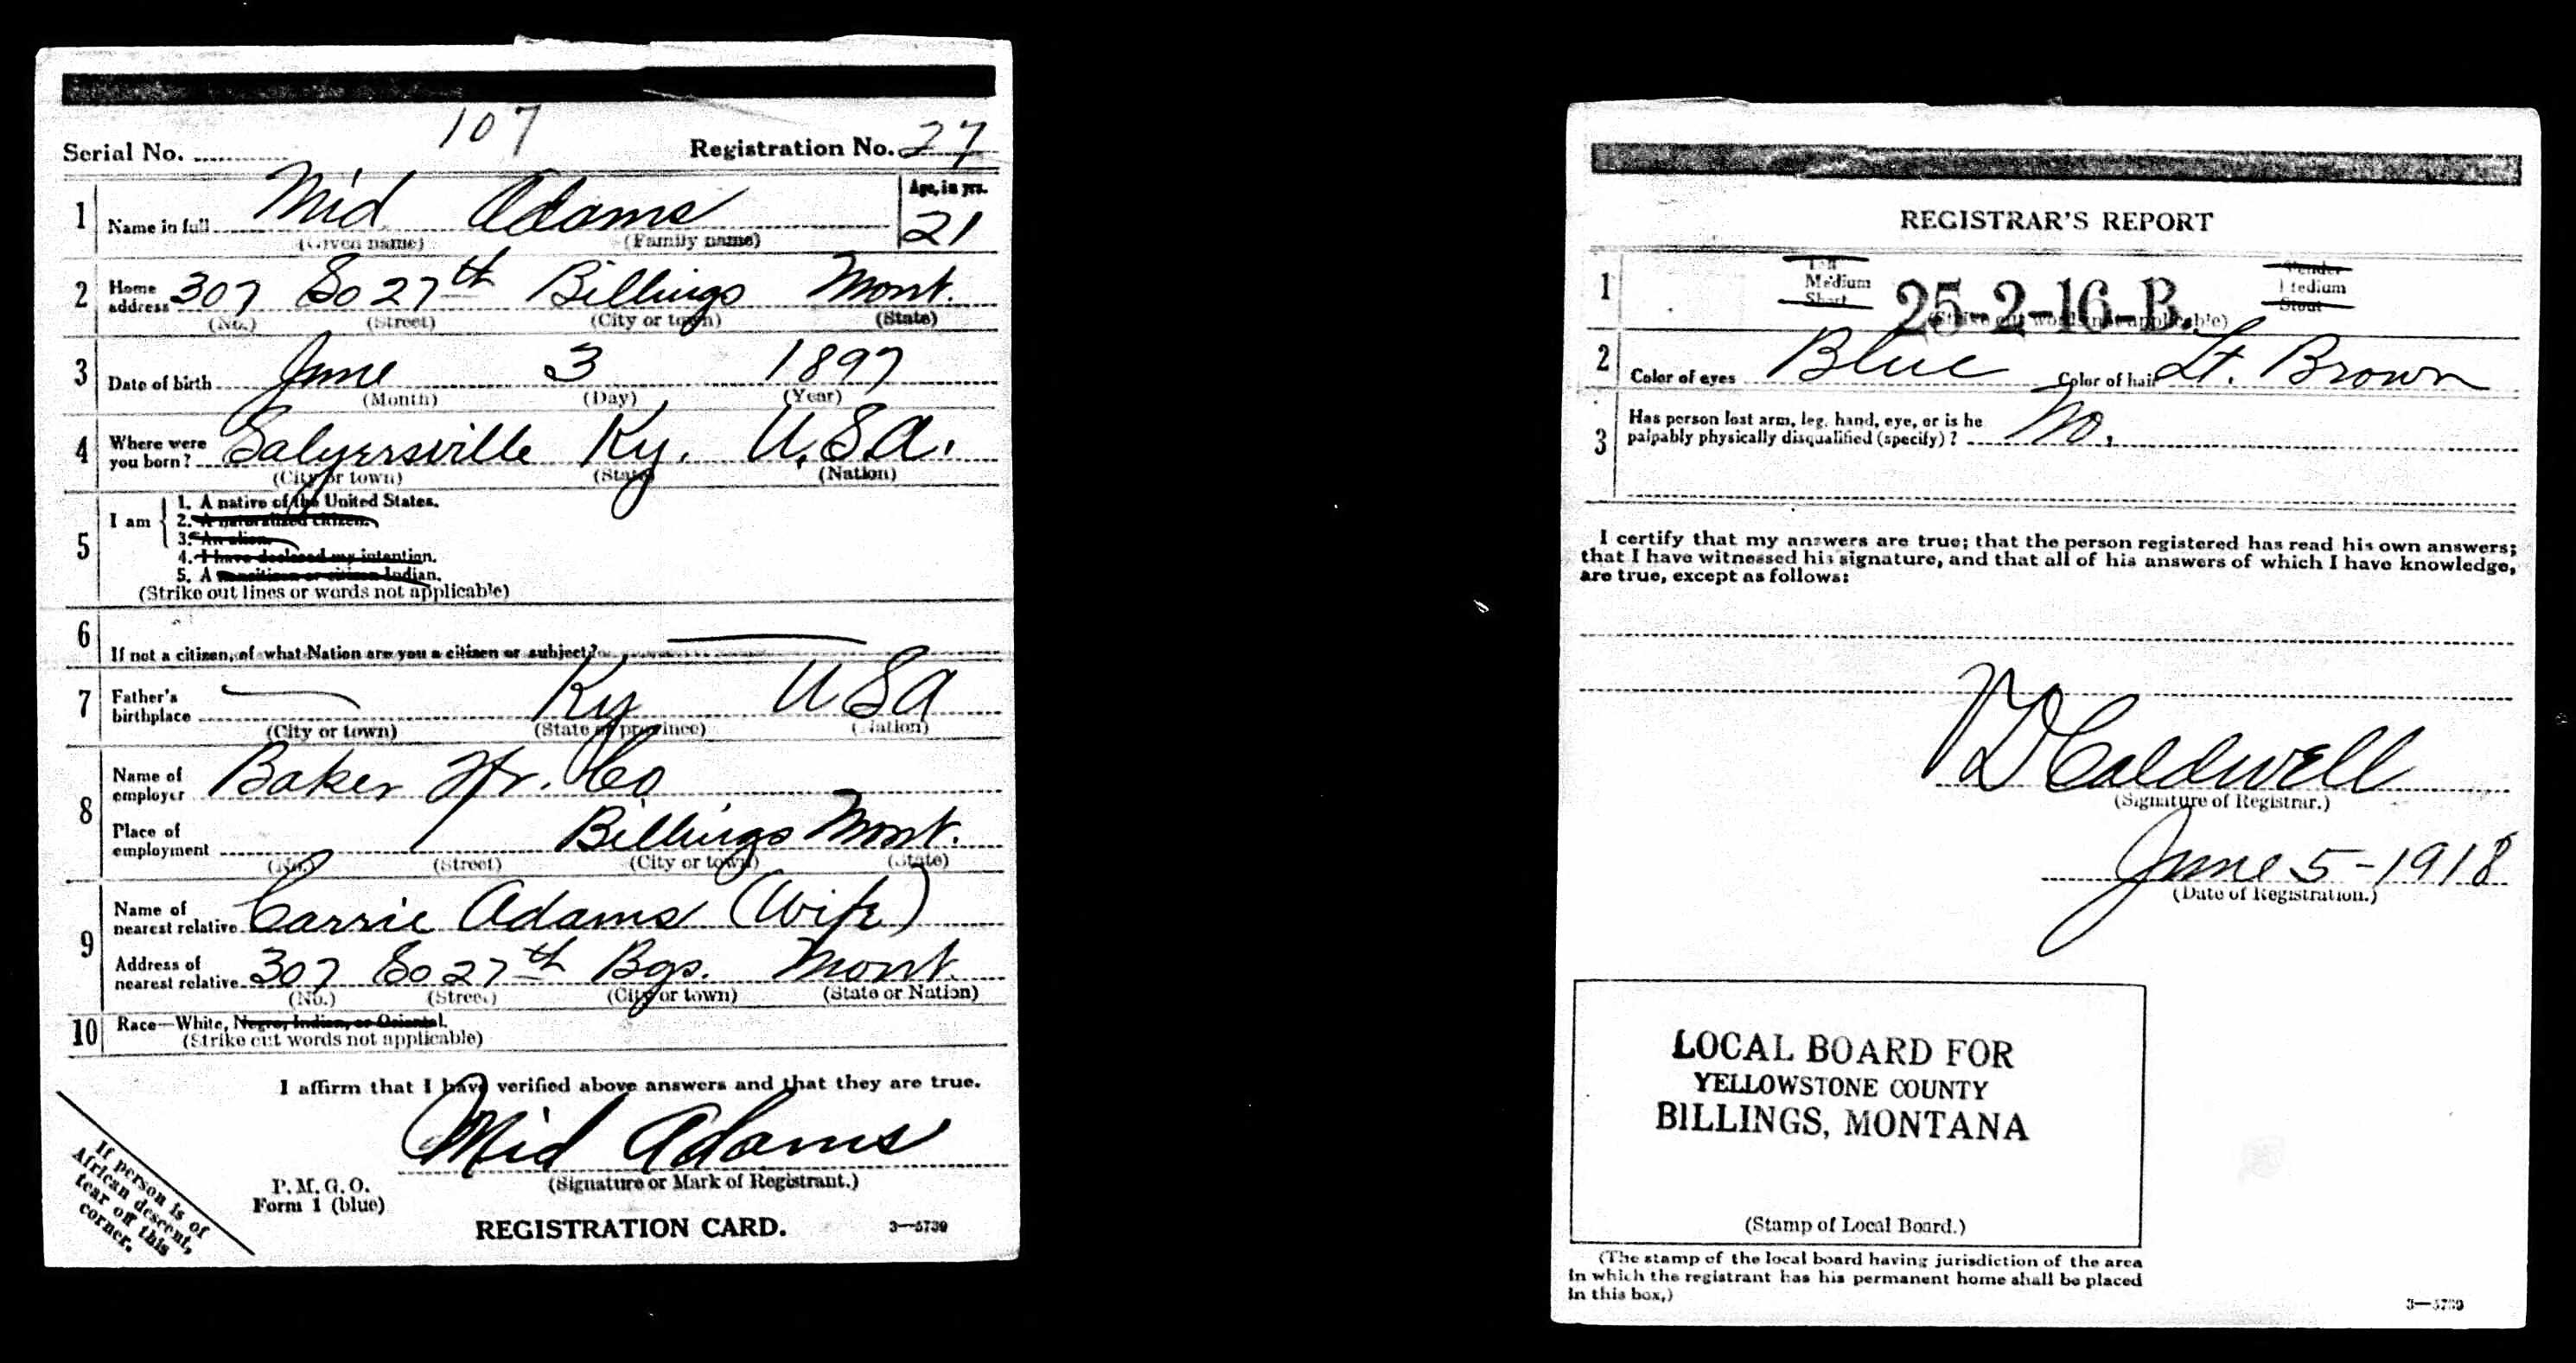 107
Serial No. Registration No. 27
1 Name in full Mid Adams Age, in yrs. 21
(Given name) (Family name)
2 Home address 307 So 27th Billings Mont.
(No.) (Street) (City or town) (State)
3 Date of birth June 3 1897
(Month) (Day) (Year)
4 Where were you born? Salyersville Ky. U.S.A.
(City or town) (State) (Nation)
5 I am
1. A native of the United States.
2. A naturalized citizen.
3. An alien.
4. I have declared my intention.
5. A noncitizen or citizen Indian.
(Strike out lines or words not applicable)
6 If not a citizen, of what Nation are you a citizen or subject?
7 Father's birthplace Ky USA
(City or town) (State or province) (Nation)
8 Name of employer Baker Co
Place of employment Billings Mont.
(No.) (Street) (City or town) (State)
9 Name of nearest relative Carrie Adams (Wife)
Address of nearest relative 307 So 27th Bgs. Mont.
(No.) (Street) (City or town) (State or Nation)
10 Race—White, Negro, Indian, or Oriental.
(Strike out words not applicable)
I affirm that I have verified above answers and that they are true.
Mid Adams
(Signature or Mark of Registrant.)
P. M. G. O.
Form 1 (blue)
REGISTRATION CARD. 3—5739
If person is of
African descent,
tear off this
corner.
REGISTRAR'S REPORT
1 Tall Slender
Medium Medium
Short Stout
25-2-16-B.
(Strike out words not applicable)
2 Color of eyes Blue Color of hair Lt. Brown
3 Has person lost arm, leg, hand, eye, or is he
palpably physically disqualified (specify)? No.
I certify that my answers are true; that the person registered has read his own answers;
that I have witnessed his signature, and that all of his answers of which I have knowledge,
are true, except as follows:
D Caldwell
(Signature of Registrar.)
June 5-1918
(Date of Registration.)
LOCAL BOARD FOR
YELLOWSTONE COUNTY
BILLINGS, MONTANA
(Stamp of Local Board.)
(The stamp of the local board having jurisdiction of the area
in which the registrant has his permanent home shall be placed
in this box.)
3—5739